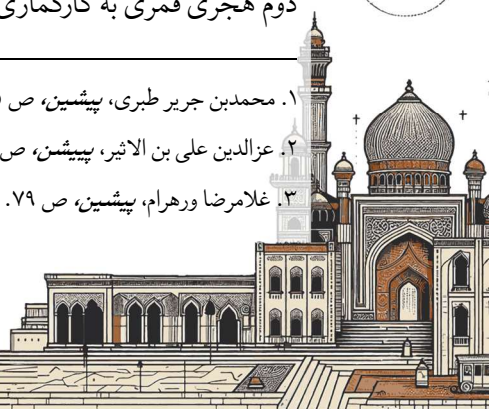 دوم هجری قمری به کارگماری
۱. محمدبن جریر طبری، پیشین، ص
۲. عزالدین علی بن الاثیر، پییشن، ص
۳. غلامرضا ورهرام، پیشین، ص ۷۹.